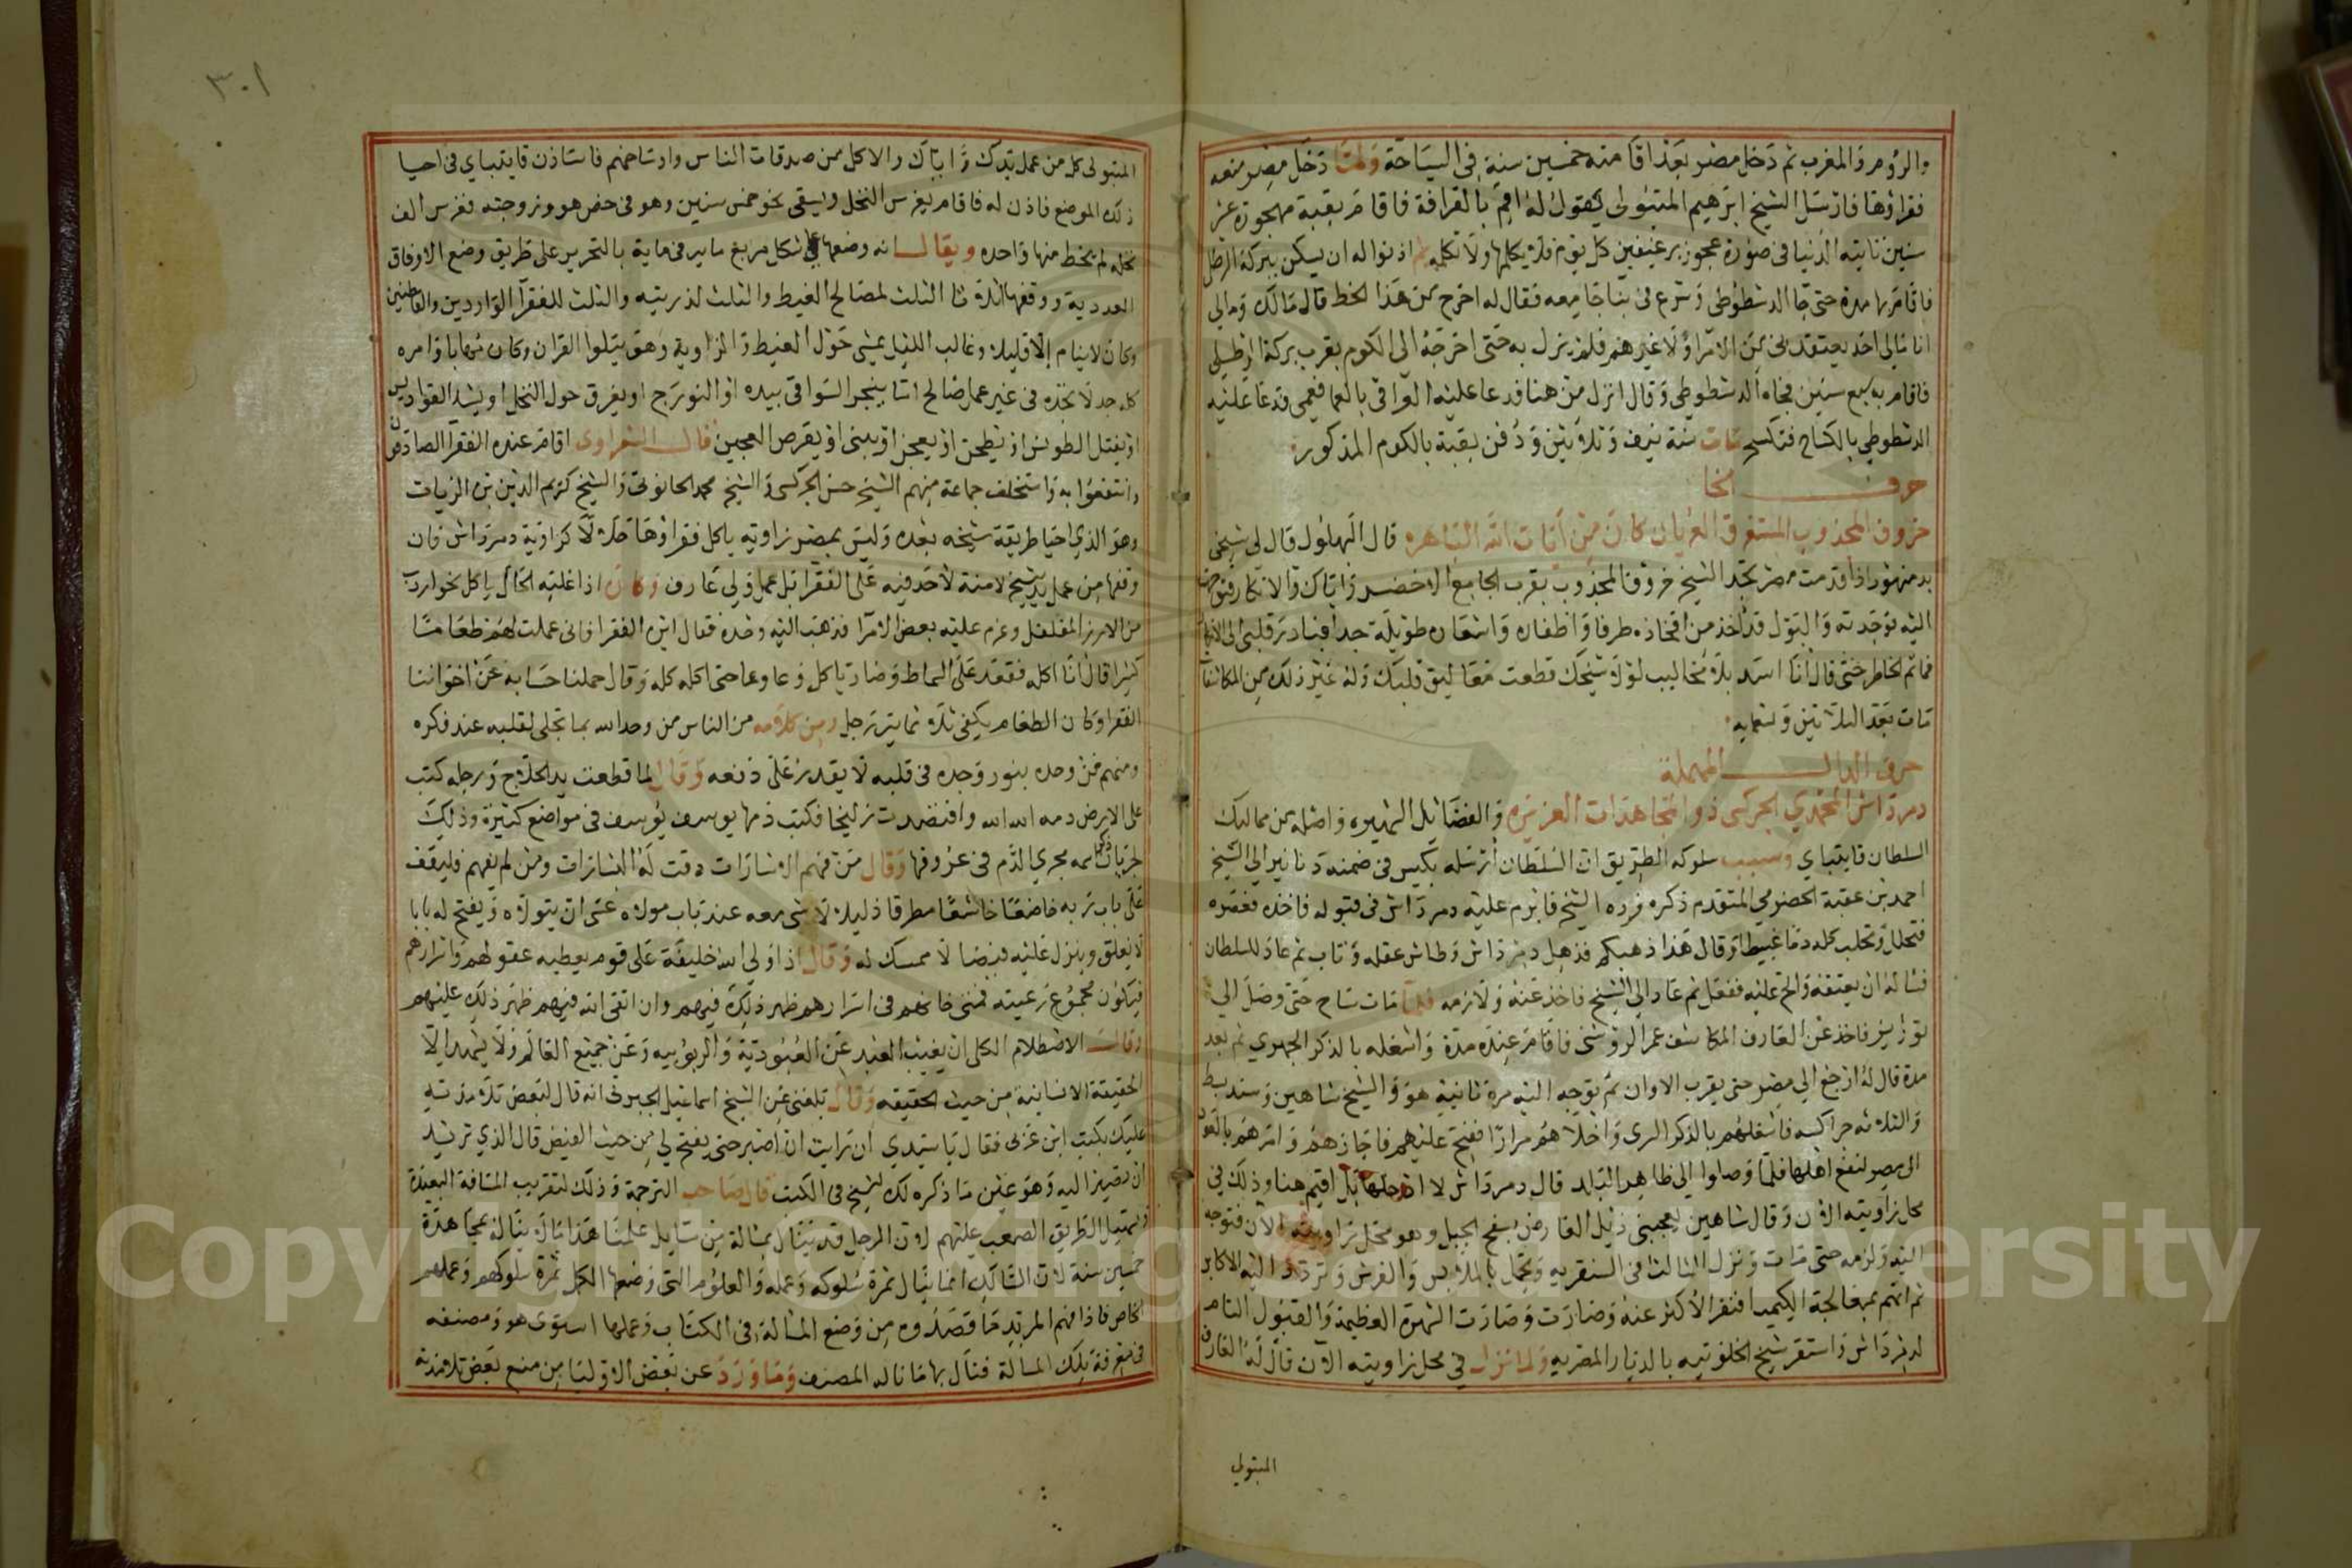 والروم والمغرب ثم دخل مصر بعد اقامته خمسين سنة في السياحة ولما دخل مصر منعه
فقراؤها فارسل الشيخ ابرهيم المتبولى يقول له اقم بالقرافة فاقام بقبة مهجورة عشر
سنين تاتيه الدنيا في صورة عجوز برغيفين كل يوم فلا يكلمها ولا تكلمه ثم اذنوا له ان يسكن ببركة الرطل
فاقام بها مدة حتى جا الدشطوطى وشرع في بنا جامعه فقال له اخرج من هذا الخط قال مالك ومالي
انا مالى احد يعتقدني من الامرا ولا غيرهم فلم يزل به حتى اخرجه الى الكوم بقرب بركة الرطلي
فاقام به سبع سنين فجاه الدشطوطي وقال انزل من هنا فدعا عليه العراقى بالعما فعمى فدعا عليه
الدشطوطي بالكساح فتكسح مات سنة نيف وثلاثين ودفن بقبة بالكوم المذكور
حرف الخا
خروف المجذوب المستغرق العريان كان من ايات الله الباهره قال البهلول قال لى شيخي
بدمنهور اذا قدمت مصر تجد الشيخ خروفا المجذوب بقرب الجامع الاخضر واياك والانكار فتوجهت
اليه فوجدته والبول قد اخذ من افخاذه طرفا واظفاره واشعاره طويلة جدا فبادر قلبي الى الانكار
فما تم الخاطر حتى قال انا اسد بلا مخاليب لولا شيخك قطعت معاليق قلبك وله غير ذلك من المكاشفات
مات بعد الثلاثين وتسعمايه
حرف الدال المهملة
دمرداش المحمدي الجركسى ذو المجاهدات العزيزه والفضايل الشهيره واصله من مماليك
السلطان قايتباي وسبب سلوكه الطريق ان السلطان ارسله بكيس في ضمنه دنانير الى الشيخ
احمد بن عقبة الحضرمي المتقدم ذكره فرده الشيخ فابرم عليه دمرداش في قبوله فاخذه فعصره
فتحلل وتحلب كله دما غبيطا وقال هذا ذهبكم فذهل دمرداش وطاش عقله وتاب ثم عاد للسلطان
فساله ان يعتقه والح عليه ففعل ثم عاد الى الشيخ فاخذ عنه ولازمه فلما مات ساح حتى وصل الى
توريز فاخذ عن العارف المكاشف عمر الروشنى فاقام عنده مدة واشغله بالذكر الجهوري ثم بعد
مدة قال له ارجع الى مصر حتى يقرب الاوان ثم توجه اليه مرة ثانية هو والشيخ شاهين وسند بسط
والثلاثه جراكسه فاشغلهم بالذكر السرى واخلاهم مرارا ففتح عليهم فاجازهم وامرهم بالعود
الى مصر لنفع اهلها فلما وصلوا الى ظاهر البلد قال دمرداش لا ادخلها بل اقيم هنا وذلك في
محل زاويته الان وقال شاهين يعجبنى ذيل العارض بسفح الجبل وهو محل زاويته الان فتوجه
اليه ولزمه حتى مات ونزل الثالث في السنقريه وتجمل بالملابس والفرش وتردد اليه الاكابر
ثم اتهم بمعالجة الكيميا فنفر الاكثر عنه وصارت وصارت الشهرة العظيمة والقبول التام
لدمرداش واستقر شيخ الخلوتيه بالديار المصريه ولما نزل في محل زاويته الان قال له العارف
المتبولي
٣٠١
المتبولى كل من عمل يدك واياك والاكل من صدقات الناس واوساخهم فاستاذن قايتباي فى احيا
ذلك الموضع فاذن له فاقام يغرس النخل ويسقى نحو خمس سنين وهو فى خص هو وزوجته فغرس الف
نخله لم يخط منها واحده ويقال انه وضعها على شكل مربع مايه فى ماية بالتحرير على طريق وضع الاوفاق
العددية ووقفها اثلاثا الثلث لمصالح الغيط والثلث لذريته والثلث للفقرآ الواردين والقاطنين
وكان لاينام الا قليلا وغالب الليل يمشى حول الغيط والزاوية وهو يتلوا القران وكان مهابا وامره
كله جد لا تجده في غير عمل صالح اما ينجر السواقى بيده او النورج او يعزق حول النخل او يشد القواديس
او يفتل الطونس او يطحن او يعجن او يبنى او يقرص العجين قال الشعراوى اقام عنده الفقرا الصادقون
وانتفعوا به واستخلف جماعة منهم الشيخ حسن الجركسى والشيخ محمد الحانوتى والشيخ كريم الدين بن الزيات
وهو الذي احيا طريقة شيخه بعده وليس بمصر زاويه ياكل فقراؤها حلالا كزاوية دمرداش فان
وقفها من عمل يد شيخ لا منة لاحد فيه على الفقرا بل عمل ولى عارف وكان اذا غلبه الحال ياكل نحو اردب
من الارز المفلفل وعزم عليه بعض الامرا فذهب اليه وحده فقال اين الفقرا فانى عملت لهم طعاما
كثيرا قال انا اكله فقعد على السماط وصار ياكل وعا وعا حتى اكله كله وقال حملنا حسابه عن اخواننا
الفقرا وكان الطعام يكفى ثلاثماية رجل ومن كلامه من الناس من وحد الله بما تجلى لقلبه عند فكره
ومنهم من وحده بنور وجده فى قلبه لا يقدر على دفعه وقال لما قطعت يد الحلاج ورجله كتب
على الارض دمه الله الله وافتصدت زليخا فكتب دمها يوسف يوسف فى مواضع كثيرة وذلك
لجريان اسمه مجري الدم فى عروقها وقال من فهم الاشارات دقت له البشارات ومن لم يفهم فليقف
على باب ربه خاضعا خاشعا مطرقا ذليلا لا شى معه عند باب مولاه عسى ان يتولاه ويفتح له بابا
لا يغلق وينزل عليه فيضا لا ممسك له وقال اذا ولى الله خليفة على قوم يعطيه عقولهم واسرارهم
فيكون مجموع رعيته فمتى خانهم فى اسرارهم ظهر ذلك فيهم وان اتقى الله فيهم ظهر ذلك عليهم
وقال الاصطلام الكل ان يغيب العبد عن العبودية والربوبيه وعن جميع العالم ولا يشهد الا
الحقيقة الانسانية من حيث الحقيقه وقال بلغنى عن الشيخ اسماعيل الجبروتى انه قال لبعض تلامذته
عليك بكتب ابن عربى فقال ياسيدي ان رايت ان اصبر حتى يفتح لى من حيث الفيض قال الذي تريد
ان تصير اليه وهو عين ما ذكره لك الشيخ فى الكتب قال صاحب الترجمة وذلك لتقريب المسافة البعيدة
وتسهيل الطريق الصعب عليهم لان الرجل قد ينال بمسالة من مسايل علمنا هذا مالا يناله بمجاهدة
خمسين سنة لان السالك انما ينال ثمرة سلوكه وعمله والعلوم التى وضعها الكل ثمرة سلوكهم وعملهم
الخاص فاذا فهم المريد ما قصدوه من وضع المسالة فى الكتاب وعلمها استوى هو ومصنفه
فى معرفة تلك المسالة فنال بها ما ناله المصنف وما ورد عن بعض الاوليا من منع بعض تلامذته
Copyright © King Saud University